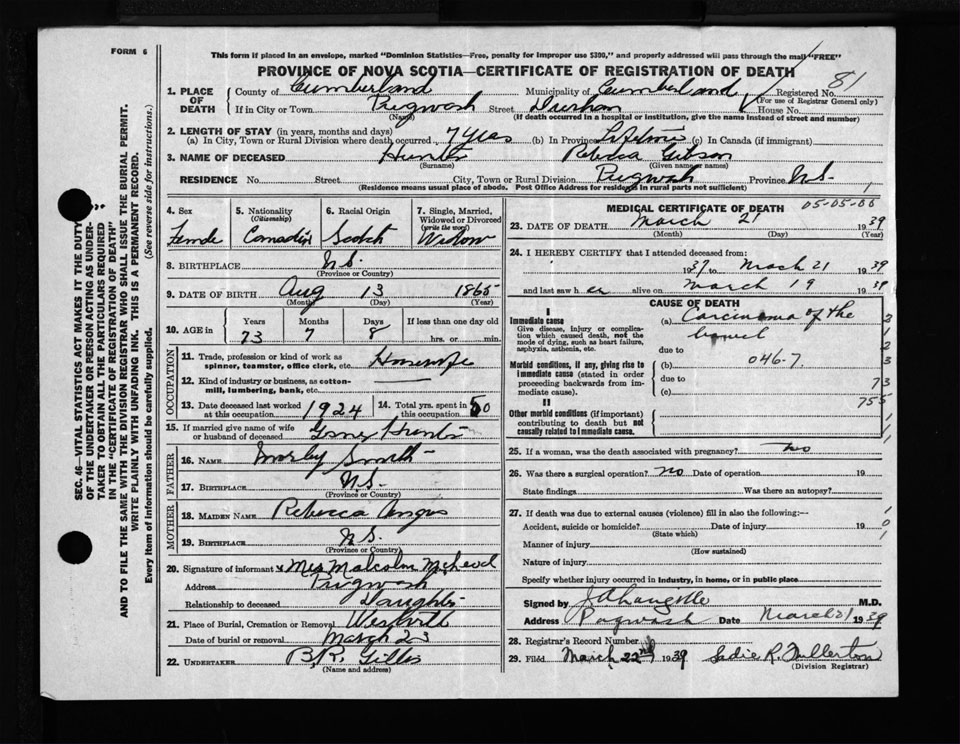 FORM 6
This form if placed in an envelope, marked "Dominion Statistics—Free, penalty for improper use $300," and properly addressed will pass through the mail "FREE"
PROVINCE OF NOVA SCOTIA—CERTIFICATE OF REGISTRATION OF DEATH
81
1. PLACE OF DEATH County of Cumberland Municipality of Cumberland Registered No.
(For use of Registrar General only)
If in City or Town Pugwash Street Durham House No.
(Name) (If death occurred in a hospital or institution, give the name instead of street and number)
2. LENGTH OF STAY (in years, months and days)
(a) In City, Town or Rural Division where death occurred 7 years (b) In Province Lifetime (c) In Canada (if immigrant)
3. NAME OF DECEASED Hunter Rebecca Gibson
(Surname) (Given name or names)
RESIDENCE No. Street City, Town or Rural Division Pugwash Province N.S.
(Residence means usual place of abode. Post Office Address for residents in rural parts not sufficient)
SEC. 46—VITAL STATISTICS ACT MAKES IT THE DUTY
OF THE UNDERTAKER OR PERSON ACTING AS UNDER-
TAKER TO OBTAIN ALL THE PARTICULARS REQUIRED
IN THE "CERTIFICATE OF REGISTRATION OF DEATH"
AND TO FILE THE SAME WITH THE DIVISION REGISTRAR WHO SHALL ISSUE THE BURIAL PERMIT.
WRITE PLAINLY WITH UNFADING INK. THIS IS A PERMANENT RECORD.
Every item of information should be carefully supplied. (See reverse side for instructions.)
4. Sex 5. Nationality 6. Racial Origin 7. Single, Married,
(Citizenship) Widowed or Divorced
(write the word)
Female Canadian Scotch Widow
8. BIRTHPLACE N.S.
(Province or Country)
9. DATE OF BIRTH Aug 13 1865
(Month) (Day) (Year)
10. AGE in Years Months Days If less than one day old
73 7 8 hrs. or min.
OCCUPATION
11. Trade, profession or kind of work as
spinner, teamster, office clerk, etc. Housewife
12. Kind of industry or business, as cotton-
mill, lumbering, bank, etc.
13. Date deceased last worked at this occupation 1924 14. Total yrs. spent in this occupation 50
15. If married give name of wife
or husband of deceased Hunter
FATHER
16. NAME Smith
17. BIRTHPLACE N.S.
(Province or Country)
MOTHER
18. MAIDEN NAME Rebecca Angus
19. BIRTHPLACE N.S.
(Province or Country)
20. Signature of informant Mrs Malcolm McLeod
Address Pugwash
Relationship to deceased Daughter
21. Place of Burial, Cremation or Removal
Date of burial or removal March 23
22. UNDERTAKER B.R. Gillis
(Name and address)
MEDICAL CERTIFICATE OF DEATH 05-05-00 1
23. DATE OF DEATH March 21 1939
(Month) (Day) (Year)
24. I HEREBY CERTIFY that I attended deceased from:
1937 to March 21 1939
and last saw her alive on March 19 1939
CAUSE OF DEATH
I
Immediate cause (a) Carcinoma of the
Give disease, injury or complica-
tion which caused death, not the
mode of dying, such as heart failure,
asphyxia, asthenia, etc. due to
Morbid conditions, if any, giving rise to
immediate cause (stated in order
proceeding backwards from im-
mediate cause). (b) 046-7.
due to
(c)
3
1
2
3
73
755
1
1
II
Other morbid conditions (if important)
contributing to death but not
causally related to immediate cause.
25. If a woman, was the death associated with pregnancy? no
26. Was there a surgical operation? no Date of operation 19
State findings Was there an autopsy?
27. If death was due to external causes (violence) fill in also the following:—
Accident, suicide or homicide? Date of injury 19
(State which)
1
0
1
Manner of injury
(How sustained)
Nature of injury
Specify whether injury occurred in industry, in home, or in public place
Signed by M.D.
Address Pugwash Date March 21 1939
28. Registrar's Record Number
29. Filed March 22nd 1939 Sadie R. Fullerton
(Division Registrar)